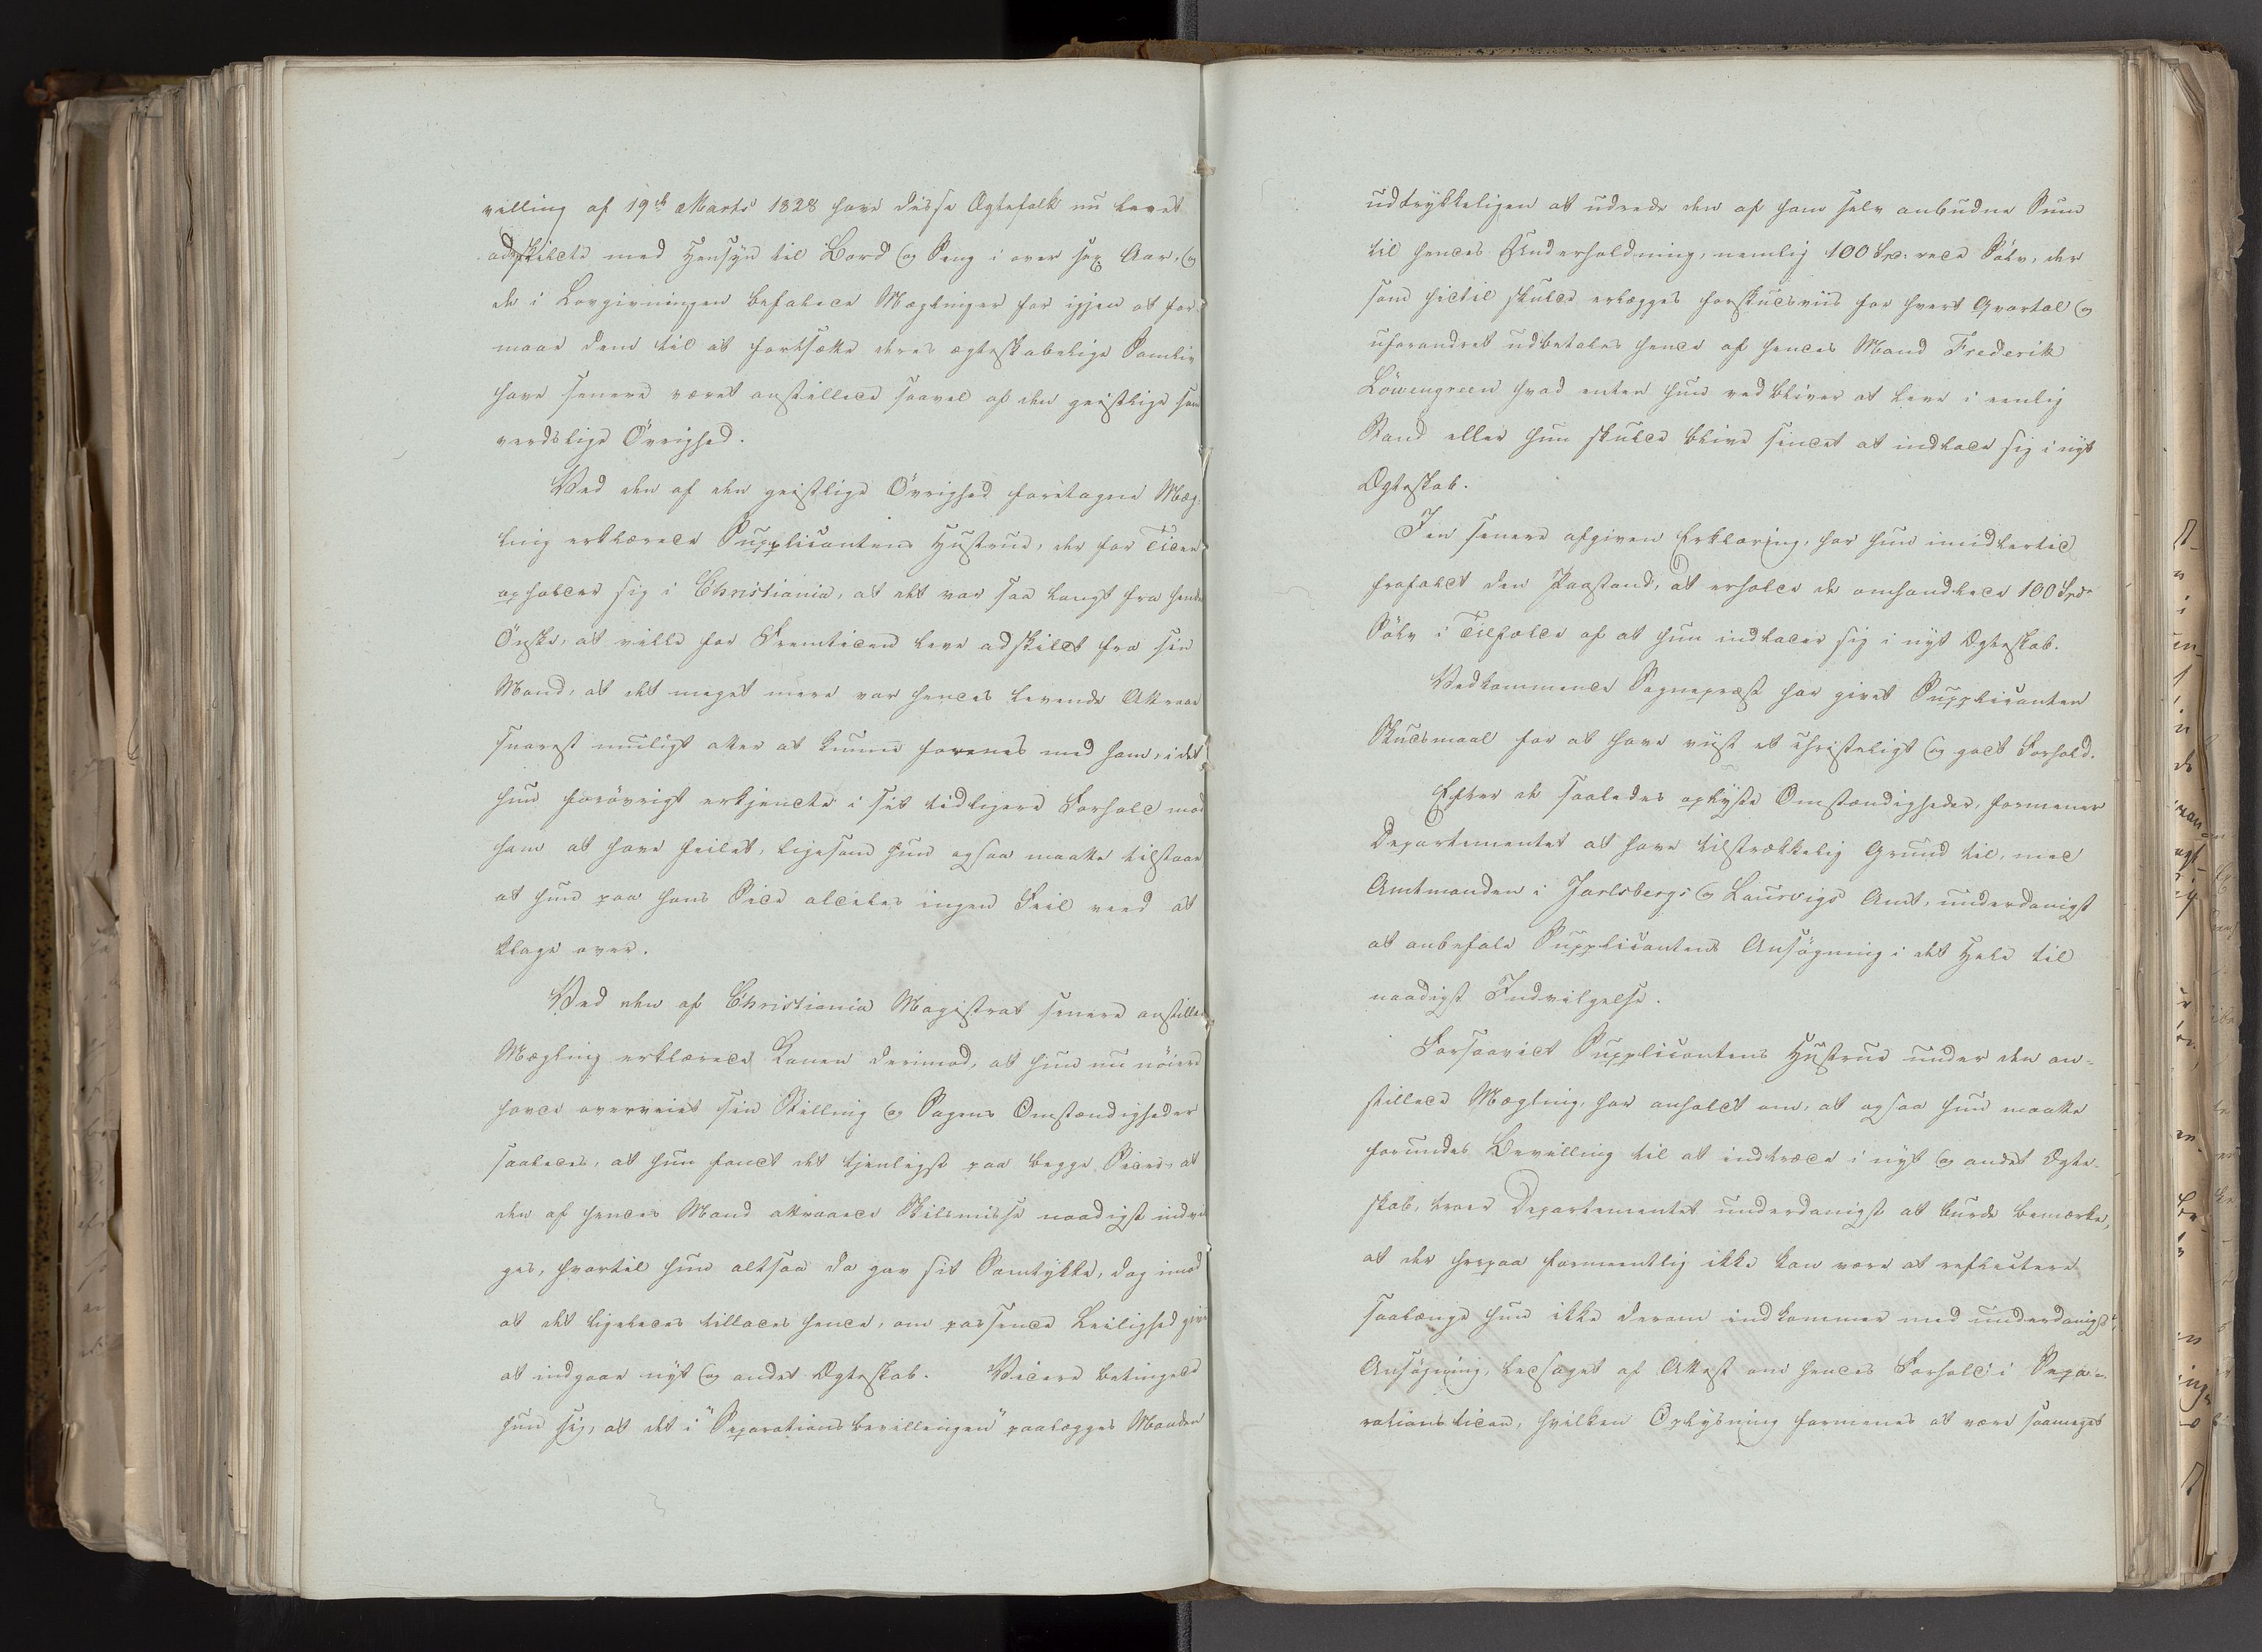 villing af 19de Marts 1828 have disse Ægtefolk nu levet
adskilte med Hensyn til Bord og Seng i over sex Aar, og
de i Lovgivningen befalede Mæglinger for igjen at for-
maae dem til at fortsætte deres ægteskabelige Samliv
have senere været anstillede saavel af den geistlige som
verdslige Övrighed.
Ved den af den geistlige Övrighed foretagne Mæg-
ling erklærede Supplicantens Hustrue, der for Tiden
opholder sig i Christiania, at det var saa langt fra hendes
Önske, at ville for Fremtiden leve adskildt fra sin
Mand, at det meget mere var hendes levende Attraae
snarest muligt atter at kunne forenes med ham, i det
hun forövrigt erkjendte i sit tidligere Forhold mod
ham at have feilet, ligesom hun ogsaa maatte tilstaae
at hun paa hans Side aldeles ingen Feil veed at
klage over.
Ved den af Christiania Magistrat senere anstillede
Mægling erklærede Konen derimod, at hun nu nöiere
havde overveiet sin Stilling og Sagens Omstændigheder
saaledes, at hun fandt det tjenligst paa begge Sider, at
den af hendes Mand attraaede Skilsmisse naadigst indvil
ges, hvortil hun altsaa da gav sit Samtykke, dog imod
at det ligeledes tillades hende, om passende Leilighed gives
at indgaae nyt og andet Ægteskab. Videre betingede
hun sig, at det i "Separationsbevillingen" paalægges Manden
udtrykkeligen at udrede den af ham selv anbudne Sum
til hendes Underholdning, nemlig 100 Spd. rede Sölv, der
som hidtil skulde erlægges forskudsviis for hvert Qvartal og
uforandret udbetales hende af hendes Mand Frederik
Löwengreen hvad enten hun vedbliver at leve i eenlig
Stand eller hun skulde blive sindet at indlade sig i nyt
Ægteskab.
I en senere afgiven Erklæring, har hun imidlertid
frafaldt den Paastand, at erholde de omhandlede 100 Spdr
Sölv i Tilfælde af at hun indlader sig i nyt Ægteskab.
Vedkommende Sognepræst har givet Supplicanten
Skudsmaal for at have viist et christeligt og godt Forhold.
Efter de saaledes oplyste Omstændigheder, formener
Departementet at have tilstrækkelig Grund til, med
Amtmanden i Jarlsbergs og Laurvigs Amt, underdanigst
at anbefale Supplicantens Ansögning i det Hele til
naadigst Indvilgelse.
Forsaavidt Supplicantens Hustrue under den an-
stillede Mægling, har anholdt om, at ogsaa hun maatte
forundes Bevilling til at indtræde i nyt og andet Ægte-
skab, troer Departementet underdanigst at burde bemærke,
at der herpaa formeentlig ikke kan være at reflectere
saalænge hun ikke derom indkommer med underdanigst
Ansögning, ledsaget af Attest om hendes Forhold i Sepa-
rationstiden, hvilken Oplysning formenes at være saameget